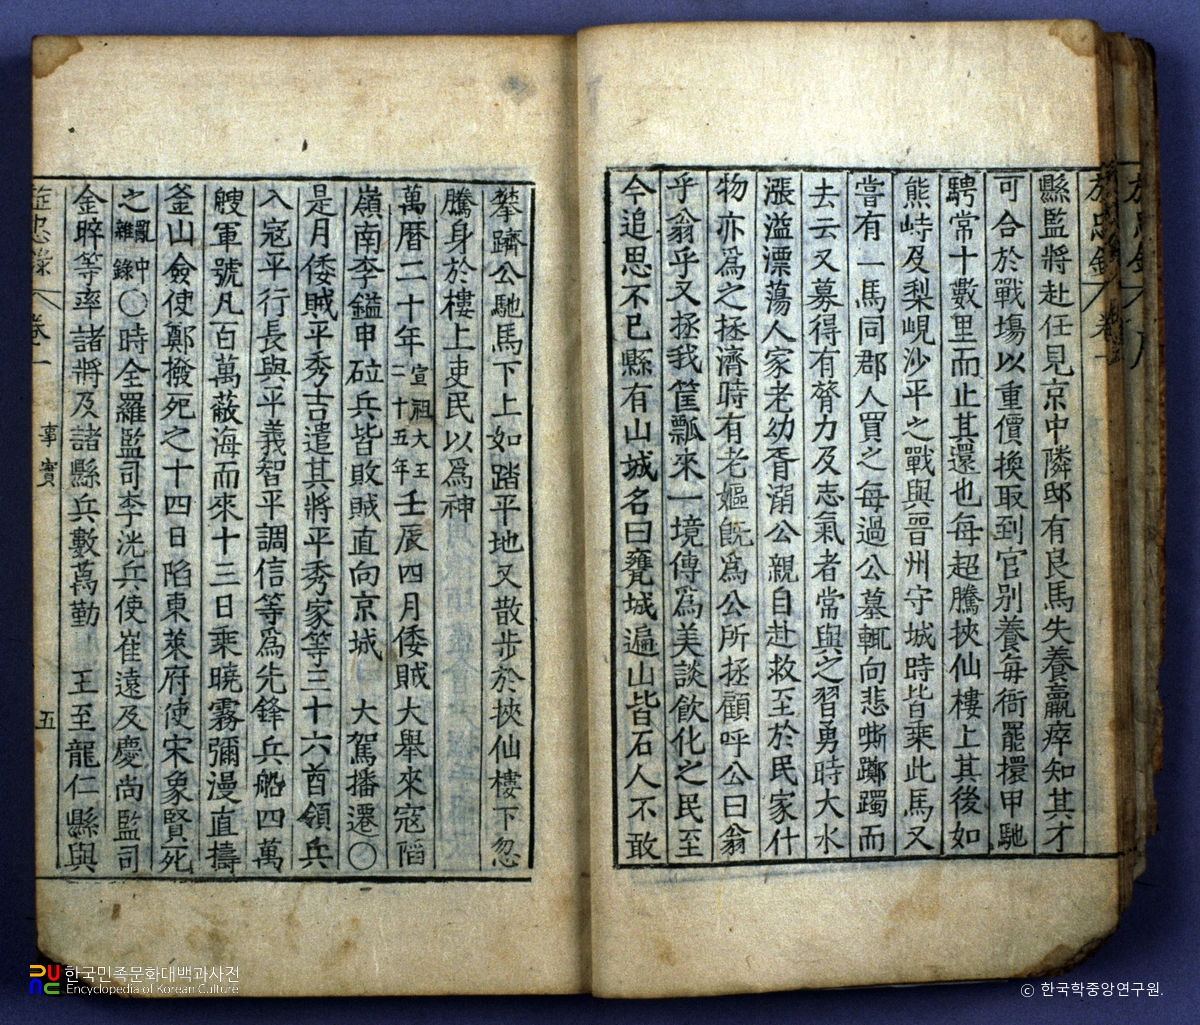 縣監將赴任見京中隣邸有良馬失養羸瘁知其才
可合於戰塲以重價換取到官别養每衙罷擐甲馳
騁常十數里而止其還也每超騰挾仙樓上其後如
熊峙及梨峴沙平之戰與晋州守城時皆乘此馬又
嘗有一馬同郡人買之每過公墓輒向悲嘶躑躅而
去云又募得有膂力及志氣者常與之習勇時大水
漲溢漂蕩人家老幼胥溺公親自赴救至於民家什
物亦爲之拯濟時有老嫗旣爲公所拯顧呼公曰翁
乎翁乎又拯我筐瓢來一境傳爲美談飮化之民至
今追思不已縣有山城名曰甕城遍山皆石人不敢
攀躋公馳馬下上如踏平地又散步於挾仙樓下忽
騰身於樓上吏民以爲神
萬曆二十年宣祖大王二十五年壬辰四月倭賊大擧來寇陷
嶺南李鎰申砬兵皆敗賊直向京城 大駕播遷〇
是月倭賊平秀吉遣其將平秀家等三十六酋領兵
入寇平行長與平義智平調信等爲先鋒兵船四萬
艘軍號凡百萬蔽海而來十三日乘曉霧彌漫直擣
釜山僉使鄭撥死之十四日陷東萊府使宋象賢死
之亂中雜錄〇時全羅監司李洸兵使崔遠及慶尙監司
金睟等率諸將及諸縣兵數萬勤 王至龍仁縣與
旌忠錄 卷一 事實 五
旌忠錄 卷一
한국민족문화대백과사전
Encyclopedia of Korean Culture
ⓒ 한국학중앙연구원.